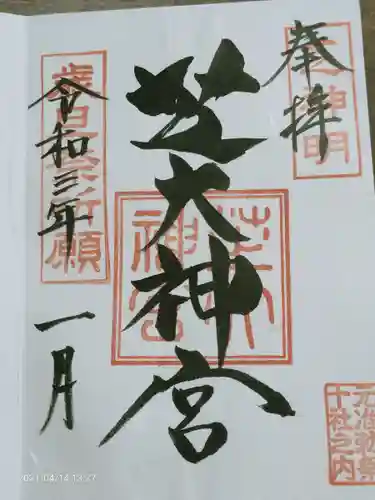 奉拝
芝神明
芝大神宮
芝大神宮
歳旦祭祈願
令和三年
一月
元准勅祭
十社之内
2021.04.14 13:27